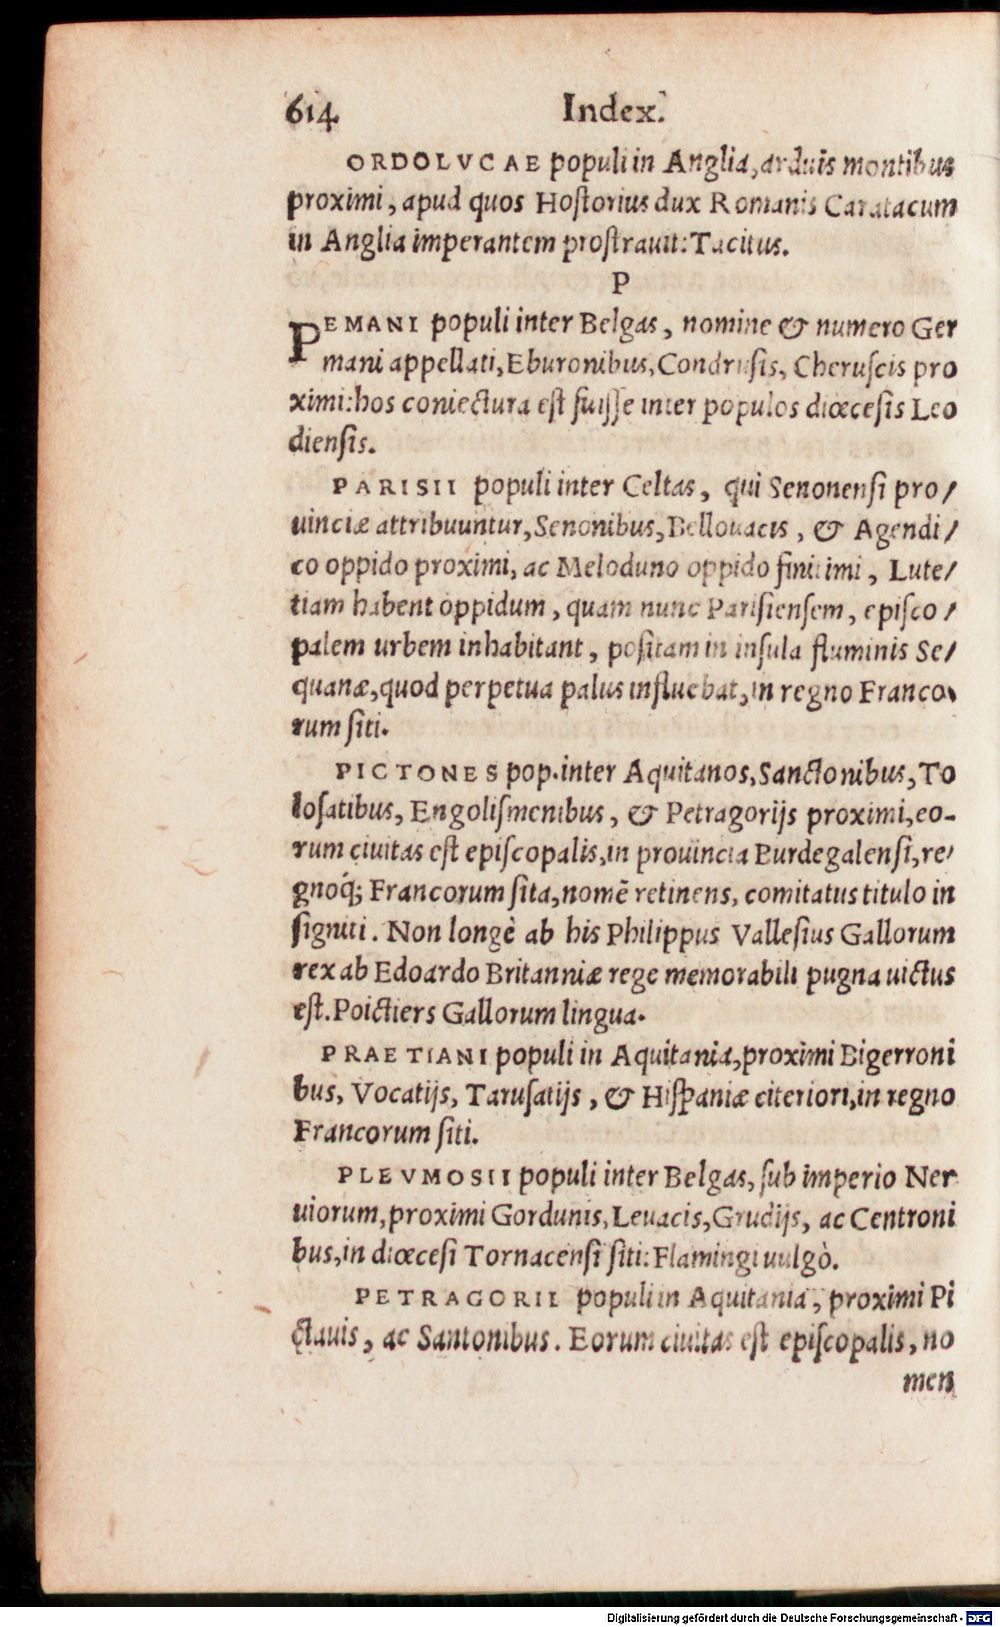 614 Index.
ORDOLVCAE populi in Anglia, arduis montibus
proximi, apud quos Hoſtorius dux Romanis Caratacum
in Anglia imperantem proſtrauit: Tacitus.
P
PEMANI populi inter Belgas, nomine & numero Ger
mani appellati, Eburonibus, Condruſis, Cheruſcis pro
ximi: hos coniectura eſt fuiſſe inter populos diœceſis Leo
dienſis.
PARISII populi inter Celtas, qui Senonenſi pro/
uinciæ attribuuntur, Senonibus, Bellouacis, & Agendi/
co oppido proximi, ac Meloduno oppido finitimi, Lute/
tiam habent oppidum, quam nunc Pariſienſem, epiſco/
palem urbem inhabitant, poſitam in inſula fluminis Se/
quanæ, quod perpetua palus influebat, in regno Franco
rum ſiti.
PICTONES pop. inter Aquitanos, Sanctonibus, To
loſatibus, Engoliſmenibus, & Petragorijs proximi, eo-
rum ciuitas eſt epiſcopalis, in prouincia Burdegalenſi, re/
gnoq́; Francorum ſita, nomē retinens, comitatus titulo in
ſigniti. Non longè ab his Philippus Valleſius Gallorum
rex ab Edoardo Britanniæ rege memorabili pugna uictus
eſt. Poictiers Gallorum lingua.
PRAETIANI populi in Aquitania, proximi Bigerroni
bus, Vocatijs, Taruſatijs, & Hiſpaniæ citeriori, in regno
Francorum ſiti.
PLEVMOSII populi inter Belgas, ſub imperio Ner
uiorum, proximi Gordunis, Leuacis, Grudijs, ac Centroni
bus, in diœceſi Tornacenſi ſiti: Flamingi uulgò.
PETRAGORII populi in Aquitania, proximi Pi
ctauis, ac Santonibus. Eorum ciuitas eſt epiſcopalis, no
men
Digitalisierung gefördert durch die Deutsche Forschungsgemeinschaft - DFG